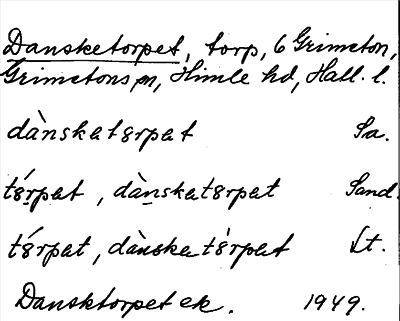 Dansketorpet, torp, 6 Grimeton,
Grimetons sn, Himle hd, Hall. l.
dànskatɞrpat Sa.
tɞ́rpat, dànskatɞrpat Sand.
tɞ́rpat, dànskatɞ̀rpat Lt.
Dansktorpet ek. 1949.